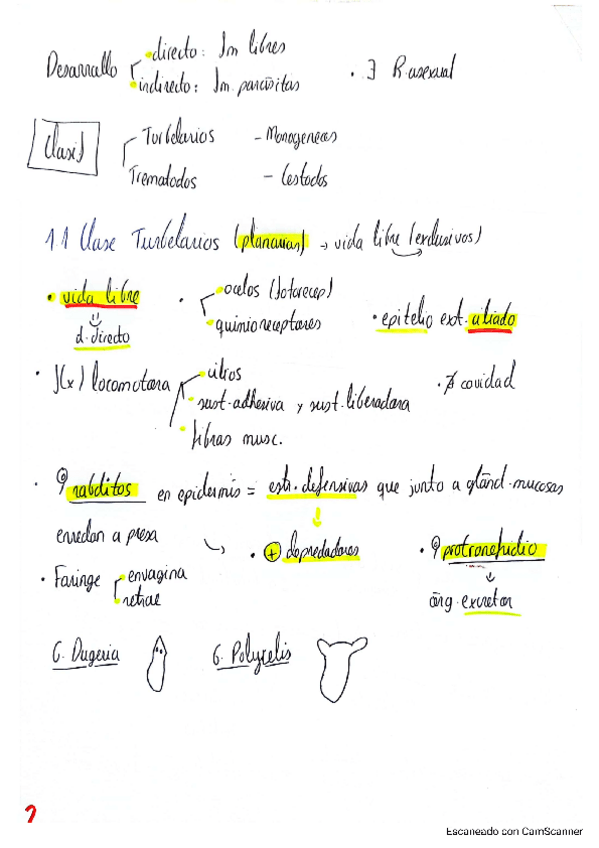 Desarrollo
directo: Im libres
indirecto: Im. parásitas
· ∃ R. asexual
Clasif
Turbelarios - Monogeneos
Trematodos - Cestodos
1.1 Clase Turbelarios (planarias) → vida libre (exclusivos)
· vida libre
d. directo
· ocelos (fotorecep)
quimioreceptores
· epitelio ext. ciliado
· f(x) locomotora
cilios
sust. adhesiva y sust. liberadora
fibras musc.
· ∄ cavidad
· rabditos en epidermis = estr. defensivas que junto a gländ. mucosas
enredan a presa
· + depredadores
· protronefridio
órg. excretor
· Faringe
envagina
retrae
G. Dugeria
G. Polycelis
Escaneado con CamScanner